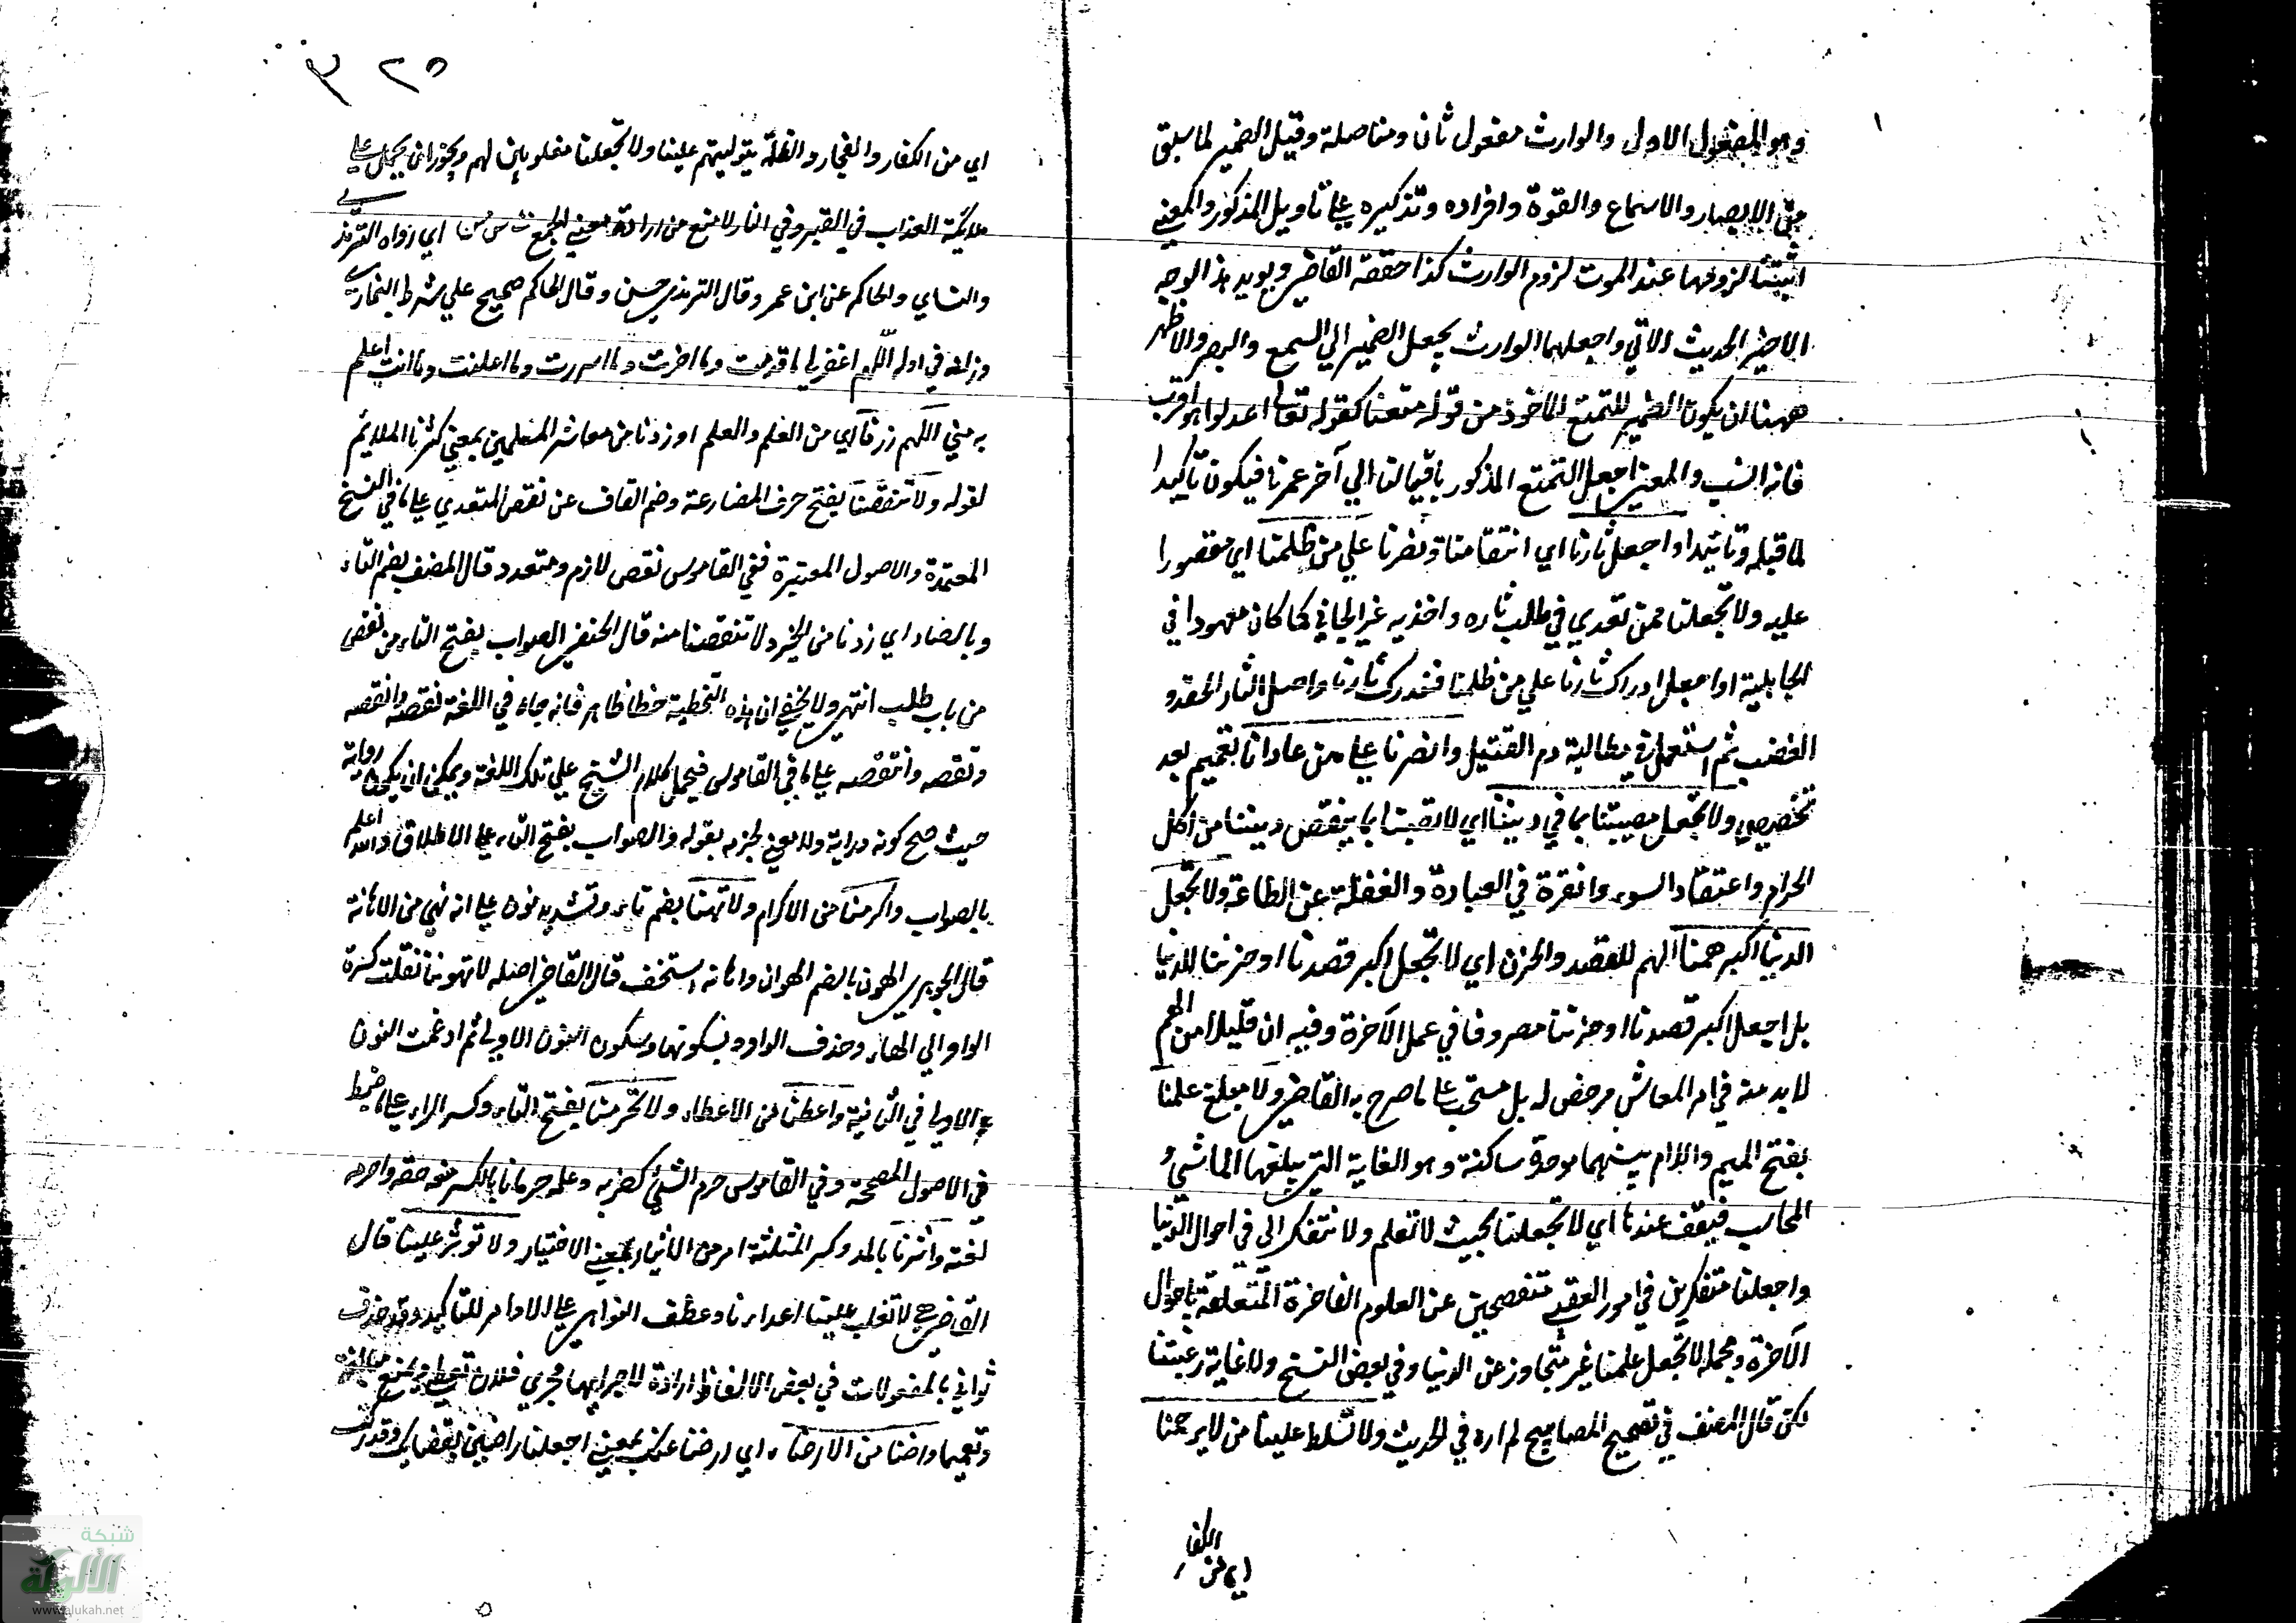 وهو المفعول الاول والوارث مفعول ثان ومنا صلة وقيل الضمير لما سبق
من الابصار والاسماع والقوة وافراده وتذكيره على تاويل المذكور والمعنى
لزومها عند الموت لزوم الوارث كذا حققه القاضي ويويد هذا الوجه
الاخير الحديث الاتي واجعلهما الوارث بجعل الضمير الي السمع والبصر والاظهر
ههنا ان يكون الضمير للتمتع الماخوذ من قوله متعنا كقوله تعالى اعدلوا هو اقرب
فانه انسب والمعنى اجعل التمتع المذكور باقيا لنا الي آخر عمرنا فيكون تاكيدا
لما قبله وتاييدا واجعل ثارنا اي انتقامنا ونصرنا علي من ظلمنا اي مقصورا
عليه ولا تجعلنا ممن تعدي في طلب ثاره واخذ به غير الجاني كما كان معهودا في
الجاهلية او اجعل ادراك ثارنا علي من ظلمنا فندرك ثارنا واصل الثار الحقد و
الغضب ثم استعمل في مطالبة دم القتيل وانصرنا على من عادانا تعميم بعد
تخصيص ولا تجعل مصيبتنا في ديننا اي لا تصبنا بما ينقص ديننا من اكل
الحرام واعتقاد السوء وانفرة في العبادة والغفلة عن الطاعة ولا تجعل
الدنيا اكبر همنا الهم للقصد والحزن اي لا تجعل اكبر قصدنا او حزننا للدنيا
بل اجعل اكبر قصدنا او حزننا مصروفا في عمل الآخرة وفيه ان قليلا من الهم
لا بد منه في امر المعاش مرخص له بل مستحب على ما صرح به القاضي ولا مبلغ علمنا
بفتح الميم واللام بينهما موحدة ساكنة وهو الغاية التي يبلغها الماشي
المحاسب فيقف عندها اي لا تجعلنا بحيث لا نعلم ولا نتفكر الى في احوال الدنيا
واجعلنا متفكرين في امور العقبى متفحصين عن العلوم الفاخرة المتعلقة باحوال
الآخرة ومجمله لا تجعل علمنا غير متجاوز عن الدنيا وفي بعض النسخ ولا غاية رغبتنا
لكن قال المصنف في تصحيح المصابيح لم اره في الحديث ولا تسلط علينا من لا يرحمنا
اي من الكفار
٣٢٥
اي من الكفار والفجار والظلمة بتوليتهم علينا ولا تجعلنا مغلوبين لهم ويجوز ان يحمل على
ملائكة العذاب في القبر وفي النار لا منع من ارادة معنى الجمع ت س مس اي رواه الترمذي
والنساي والحاكم عن ابن عمر وقال الترمذي حسن وقال الحاكم صحيح علي شرط البخاري
وزاد في اوله اللهم اغفر لي ما قدمت وما اخرت وما اسررت وما اعلنت وما انت اعلم
به مني اللهم زدنا اي من العلم والعلم او زدنا من معاشر المسلمين بمعنى كثرنا الملايم
لقوله ولا تنقصنا بفتح حرف المضارعة وضم القاف من نقص المتعدي على ما في النسخ
المعتمدة والاصول المعتبرة ففي القاموس نقص لازم ومتعدد قال المصنف بضم التاء
وبالصاد اي زدنا من الخير ولا تنقصنا منه قال الحنفي الصواب بفتح التاء من نقص
من باب طلب انتهى ولا يخفى ان هذه التخطية خطا ظاهر فانه جاء في اللغة نقصه وانقصه
ونقصه وانتقصه على ما في القاموس فيحمل كلام الشيخ علي تلك اللغة ويمكن ان يكون رواية
حيث صح كونه دراية ولا معنى لجزمه بقوله والصواب بفتح التاء على الاطلاق والله اعلم
بالصواب واكرمنا من الاكرام ولا تهنا بضم تاء وتشديد نون على انه نهي من الاهانة
قال الجوهري الهون بالضم الهوان واهانه استخف قال القاضي اصله لا تهوننا نقلت كسرة
الواو الي الهاء وحذف الواو بسكونها وسكون النون الاولى ثم ادغمت النون
الاولى في الثانية واعطنا من الاعطاء ولا تحرمنا بفتح التاء وكسر الراء على ما ضبط
في الاصول المصححة وفي القاموس حرم الشيء كضربه وعلمه حرمانا بالكسر منعه حقه واحرمه
لغته وآثرنا بالمد وكسر المثلثة امر من الايثار بمعنى الاختيار ولا توثر علينا قال
القاضي لا تغلب علينا اعداءنا وعطف النواهي على الاوامر للتاكيد وقد حذف
ثواني المفعولات في بعض الالفاظ ارادة لاجرايها مجرى فلان يعطي ويمنع مبالغة
وتعميما وارضنا من الارضاء اي ارضنا عنك بمعنى اجعلنا راضين بقضايك وقدرك
شبكة
الألوكة
www.alukah.net